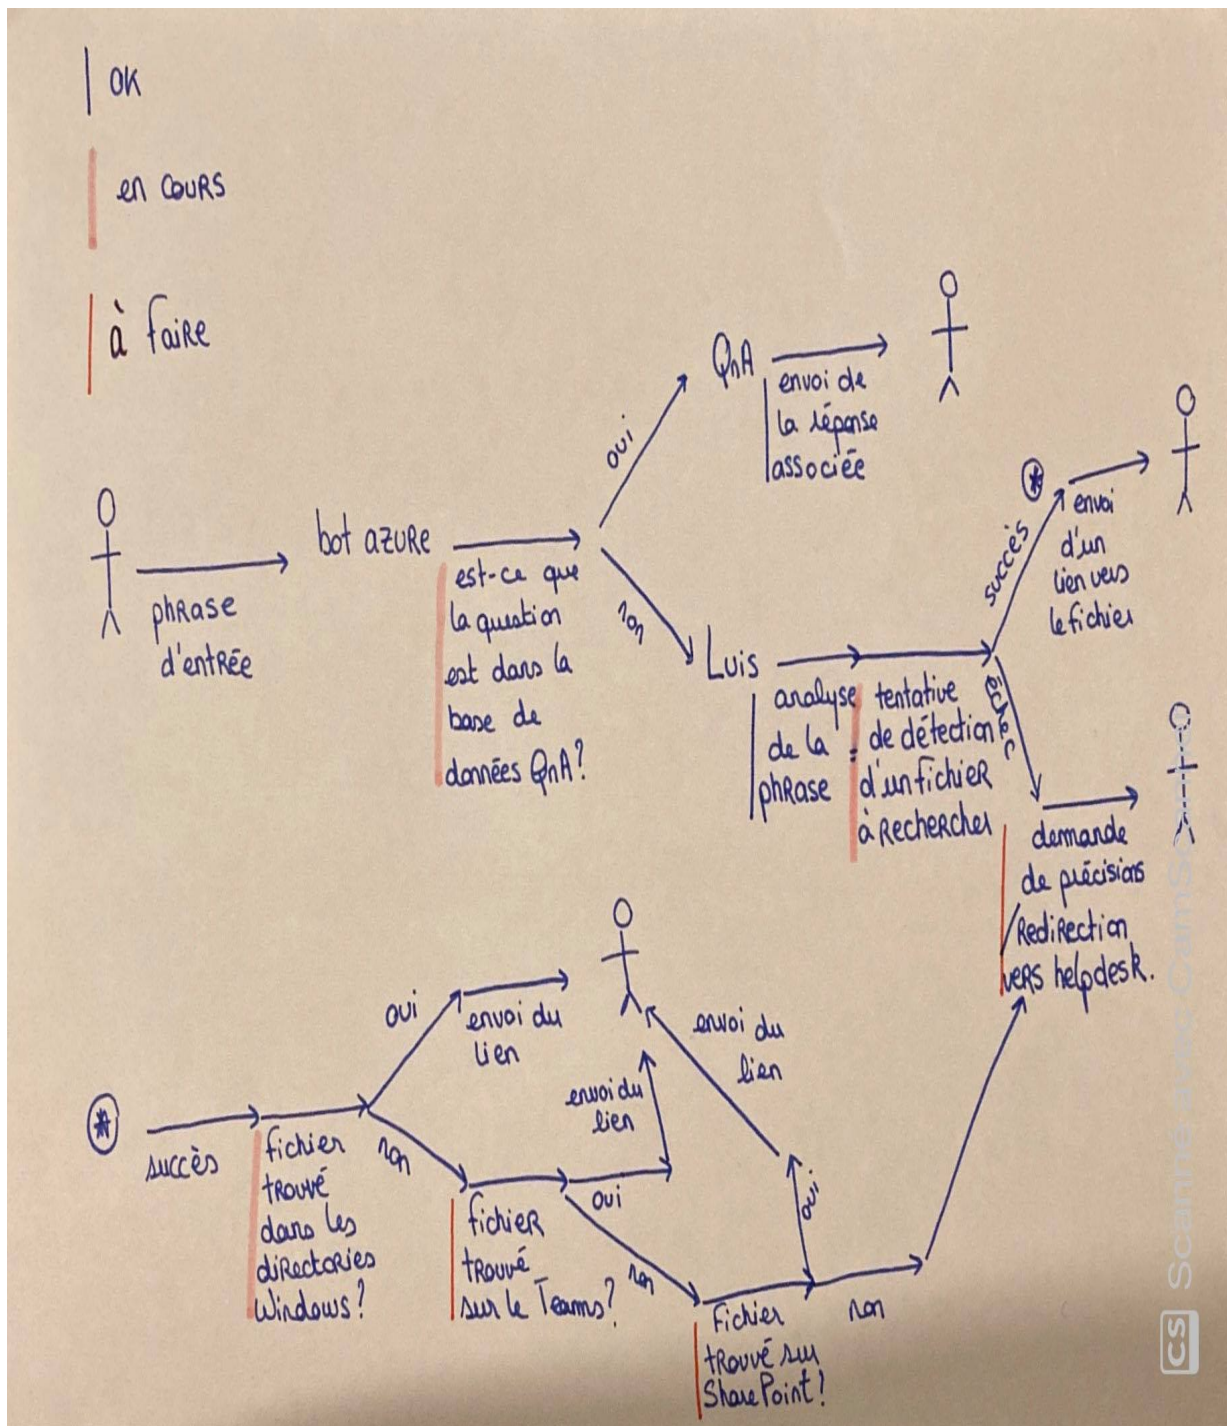 OK
en cours
à faire
phrase
d'entrée
bot azure
est-ce que
la question
est dans la
base de
données QnA?
oui
non
QnA
envoi de
la réponse
associée
Luis
analyse
de la
phrase
:
tentative
de détection
d'un fichier
à rechercher
succès
*
envoi
d'un
lien vers
le fichier
échec
demande
de précisions
/Redirection
vers helpdesk.
*
succès
fichier
trouvé
dans les
directories
windows?
oui
envoi du
lien
non
fichier
trouvé
sur le Teams?
oui
envoi du
lien
non
Fichier
trouvé sur
SharePoint?
oui
envoi du
lien
non
CS Scanné avec CamScanner